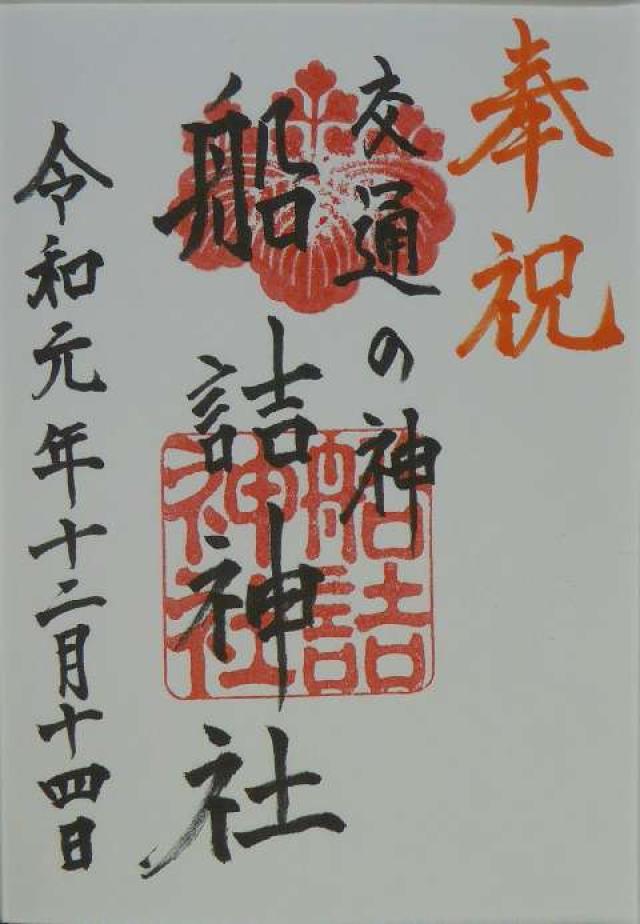 奉祝
交通の神
船詰神社
船詰神社
令和元年十二月十四日